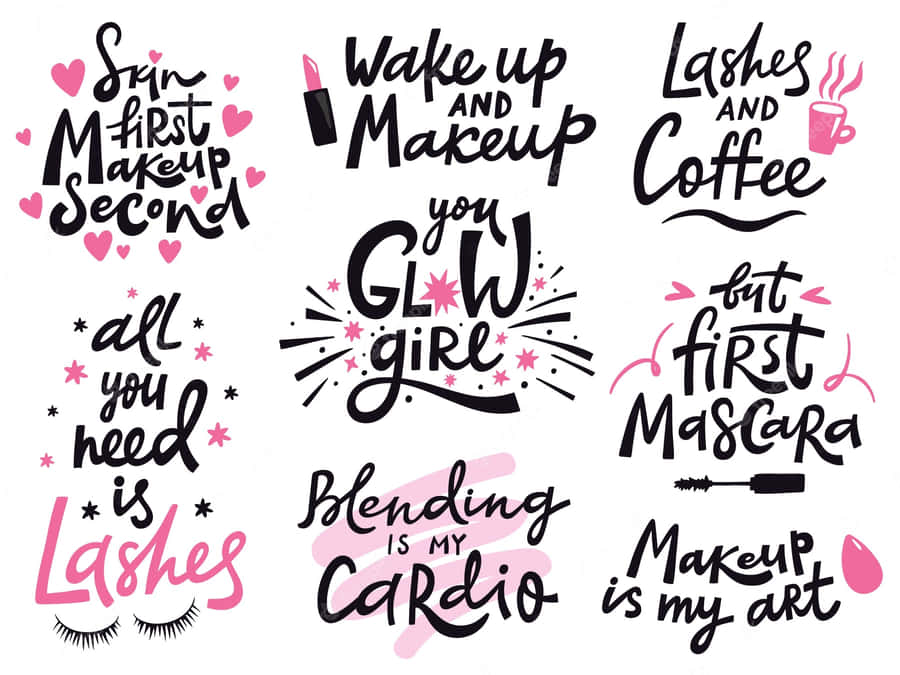 Skin
first
Makeup
Second
Wake up
AND
Makeup
Lashes
AND
Coffee
you
GLOW
girl
all
you
need
is
Lashes
but
first
Mascara
Blending
IS MY
Cardio
Makeup
is my art